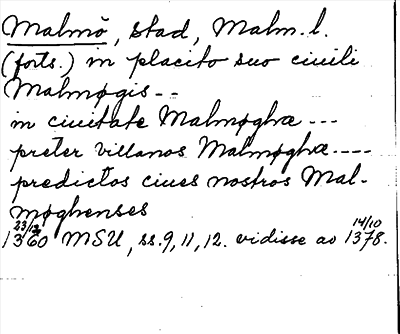 Malmö, stad, Malm. l.
(forts.) in placito suo ciuili
Malmøgis --
in ciuitate Malmøghæ ---
preter villanos Malmøghæ ----
predictos ciues nostros Mal-
møghenses
23/12 1360 MSU, ss. 9, 11, 12. vidisse av 14/10 1378.